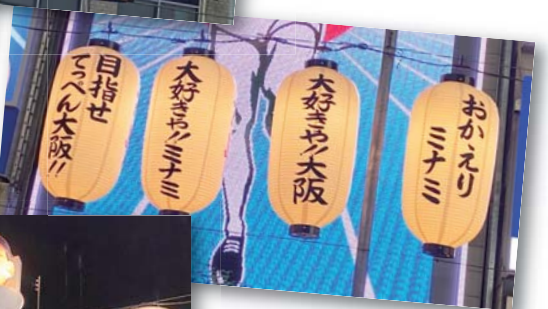 目指せ
てっぺん大阪!!
大好きや!!ミナミ
大好きや!!大阪
おかえり
ミナミ